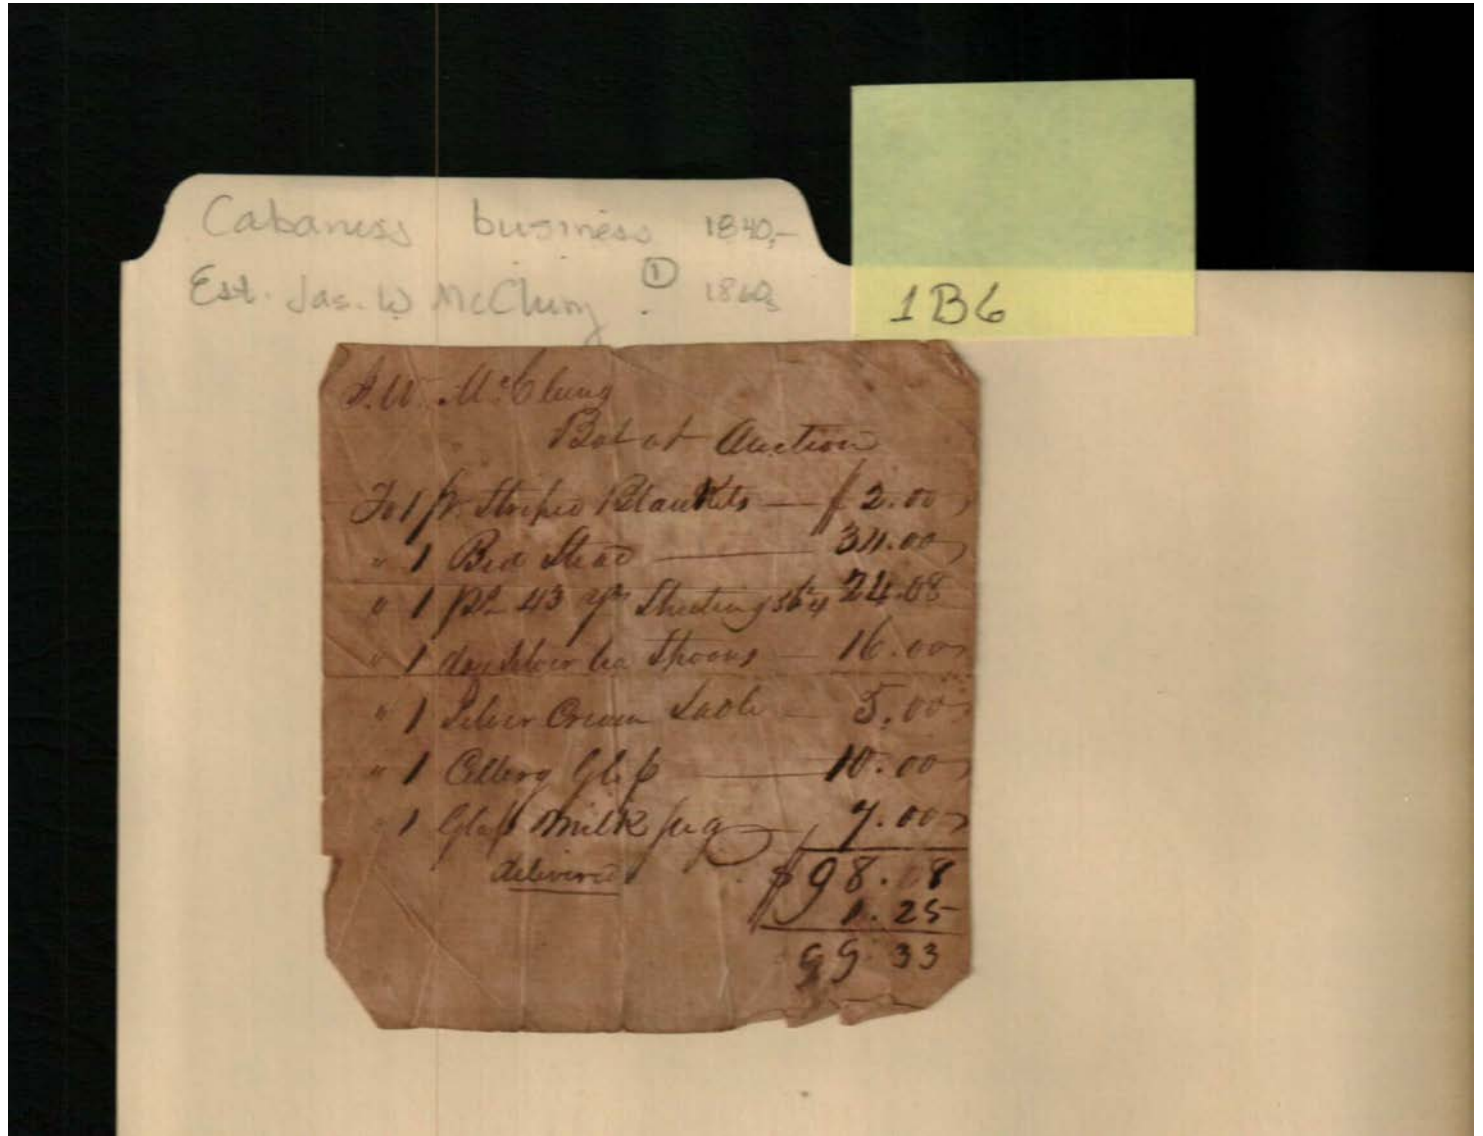 Cabaness business 1840,-
Est. Jas. W McClung ① 1860s
1B6
J. W. McClung
Bot at Auction
To 1 pr. Striped Blankets — $2.00
" 1 Bed Stead — 34.00
" 1 Ps 43 yds Sheeting 56 24.08
" 1 doz Silver tea Spoons — 16.00
" 1 Silver Cream Ladle — 5.00
" 1 Cellery Glass — 10.00
" 1 Glass Milk jug — 7.00
delivered $98.08
1.25
99 33